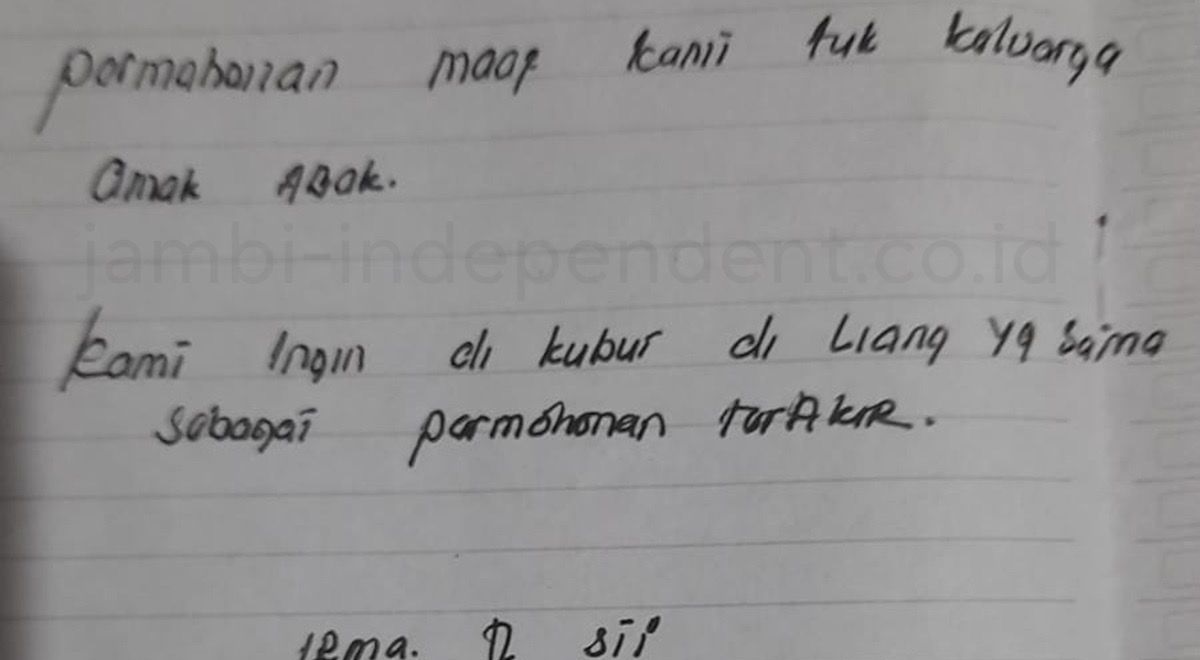 permahonan maaf kami tuk keluarga
amak ABak.
jambi-independent.co.id
kami Ingin di kubur di Liang yg sama
sebagai permohonan terAkIR.